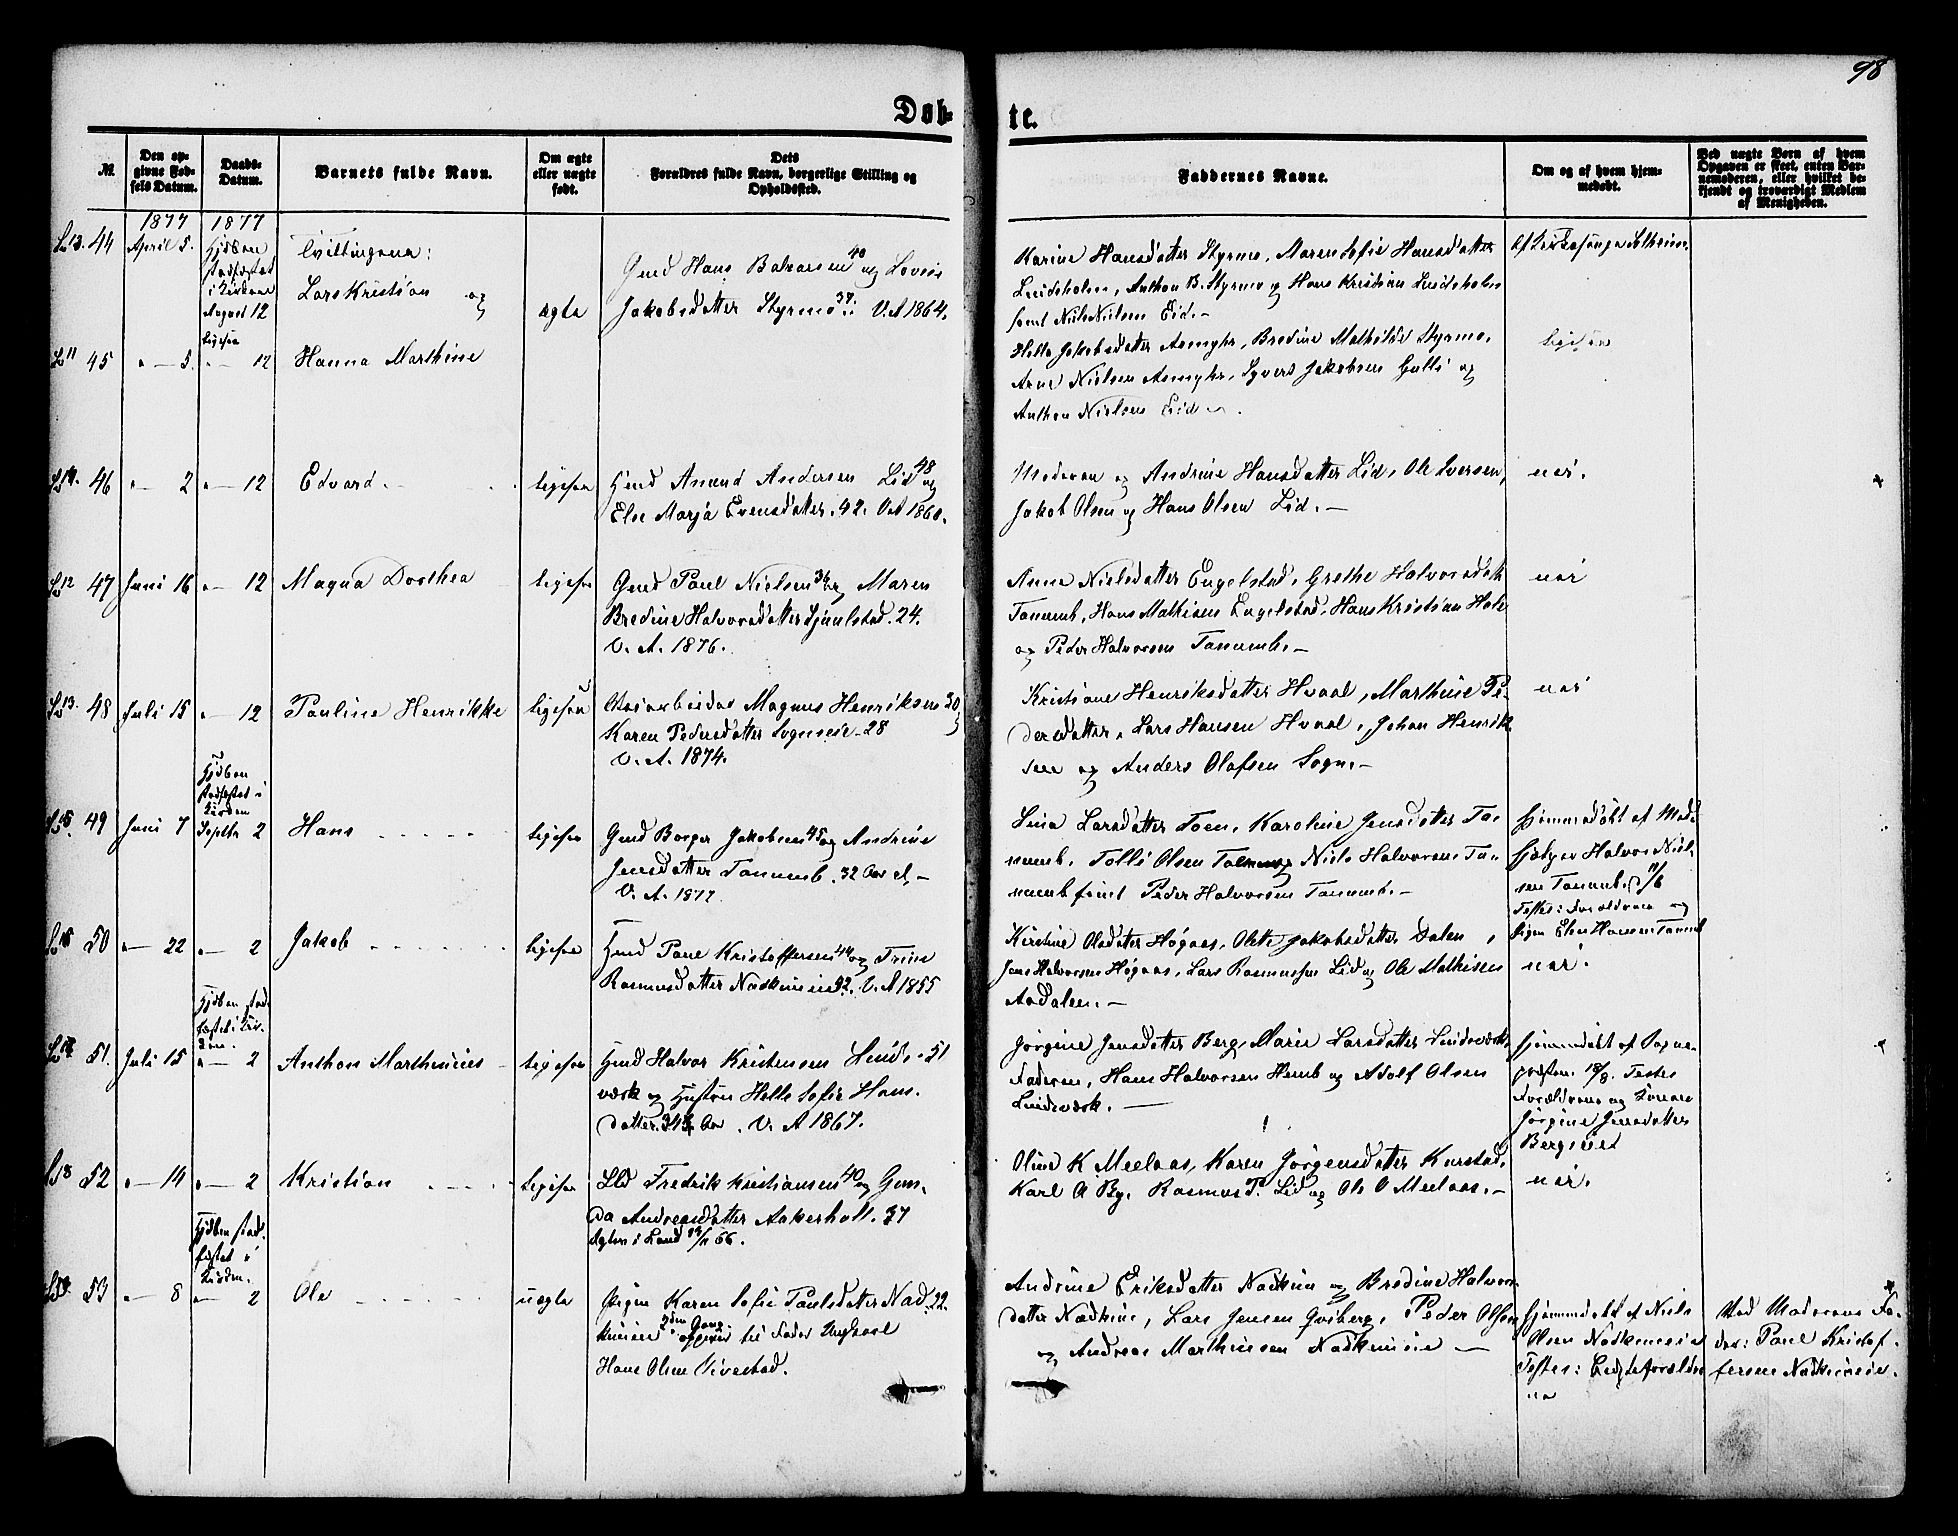 98
Døb-
te.
№
Den opgivne Fødsels Datum.
Daabs-Datum.
Barnets fulde Navn.
Om ægte eller uægte født.
Dets Forældres fulde Navn, borgerlige Stilling og Opholdssted.
Faddernes Navne.
Om og af hvem hjemmedøbt.
Ved uægte Børn af hvem Opgaven er skeet, enten Barnemoderen, eller hvilket bekjendt og troværdigt Medlem af Menigheden.
1877
1877
44
April 5.
Hjdben
stadfæstet
i Kirken
August 12
Tvillingerne:
Lars Kristian og
ægte
Gmd Hans Balvarsen 40 og Lovise
Jakobsdatter Styrmo 37. V. A 1864.
Karine Hansdatter Styrmo, Maren Sofie Hansdatter
Lindeholm, Anthon B. Styrmo og Hans Kristian Lindeholm
samt Nils Nielsen Eid. —
Af Kirkesanger Solheim
45
" — 5.
ligesaa
" — 12
Hanna Marthine
Helle Jakobsdatter Asmyhr, Bredine Mathilde Styrmo,
Arne Nielsen Asmyhr, Syvert Jakobsen Gulli og
Anthon Nielsen Eid — .
ligesaa
46
" — 2
" — 12
Edvard
ligesaa
Hmd Amund Andersen Lid 48 og
Else Marja Evensdatter. 42. V. A 1860.
Moderen og Andrine Hansdatter Lid, Ole Iversen,
Jakob Olsen og Hans Olsen Lid. —
nei.
47
Juni 16
" — 12
Magna Dorthea
ligesaa
Gmd Paul Nielsen 34 og Maren
Bredine Halvorsdatter Hjuulstad. 24.
V. A. 1876.
Anne Nielsdatter Engelstad, Grethe Halvorsdatt
Tanumb, Hans Mathisen Engelstad, Hans Kristian Holt
og Peder Halvorsen Tanumb. —
nei
48
Juli 15
" — 12
Pauline Henrikke
ligesaa
Veiarbeider Magnus Henriksen 30 og
Karen Pedersdatter Sogneeie. 28
V. A. 1874.
Kristiane Henriksdatter Hvaal, Marthine Pe-
dersdatter, Lars Hansen Hvaal, Johan Henrik
sen og Anders Olafsen Sogn. —
nei
49
Juni 7
Hjdben
stadfæstet i
Kirken
Septbr 2
Hans
ligesaa
Gmd Borger Jakobsen 45 og Andrine
Jensdatter Tanumb. 32 Aar el. —
V. A. 1877.
Lina Larsdatter Toen, Karoline Jensdatter Ta-
numb, Tolle Olsen Tanum og Niels Halvorsen Ta-
numb samt Peder Halvorsen Tanumb. —
Hjemmedøbt af Med-
hjælper Halvor Niel-
sen Tanumb. d 11/6
Testes: Forældrene og
Pigen Elen Hansen Tanumb
50
" — 22
" — 2
Jakob
ligesaa
Hmd Paul Kristoffersen 44 og Trine
Rasmusdatter Nødkineie 42. V. A 1855
Kirstine Olsdatter Høgaas, Olette Jakobsdatter Dalen,
Jens Halvorsen Høgaas, Lars Rasmussen Lid og Ole Mathisen
Aadalen. —
nei.
51.
Juli 15
Hjdben stad-
fæstet i Kir-
ken.
" — 2
Anthon Marthinius
ligesaa
Hmd Halvor Kristensen Linde- 51
værk og Hustru Helle Sofie Hans-
datter. 34¾ Aar. V. A 1867.
Jørgine Jensdatter Berg, Marie Larsdatter Lindeværk,
Faderen, Hans Halvorsen Hemb og Adolf Olsen
Lindeværk. —
Hjemmedøbt af Sogne-
præsten 18/8. Testes
Forældrene og Konen
Jørgine Jensdatter
Bergseiet
52
" — 14
" — 2
Kristian
ligesaa
Lld Fredrik Kristiansen 40 og Gun-
da Andreasdatter Aakerholt. 37
Ægtev. i Land 29/11 66.
Oline K Meelaas, Karen Jørgensdatter Kurstad,
Karl A By, Rasmus P. Lid og Ole O Meelaas. —
nei.
53
" — 8
Hjdben stad-
fæstet i
Kirken.
" — 2
Ole
uægte
Pigen Karen Sofie Paulsdatter Nød- 22.
kineie 2den Gang opgiver til Fader Ungkarl
Hans Olsen Vivestad.
Andrine Eriksdatter Nødkin og Bredine Halvors
datter Nødkine, Lars Jensen Gviberg, Peder Olsen
og Andreas Marthinsen Nødkineie —
Hjemmedøbt af Niels
Olsen Nødkineeiet
Testes: Bedsteforældre
ne
Ved Moderens Fa-
der: Paul Kristof-
fersen Nødkineeie.